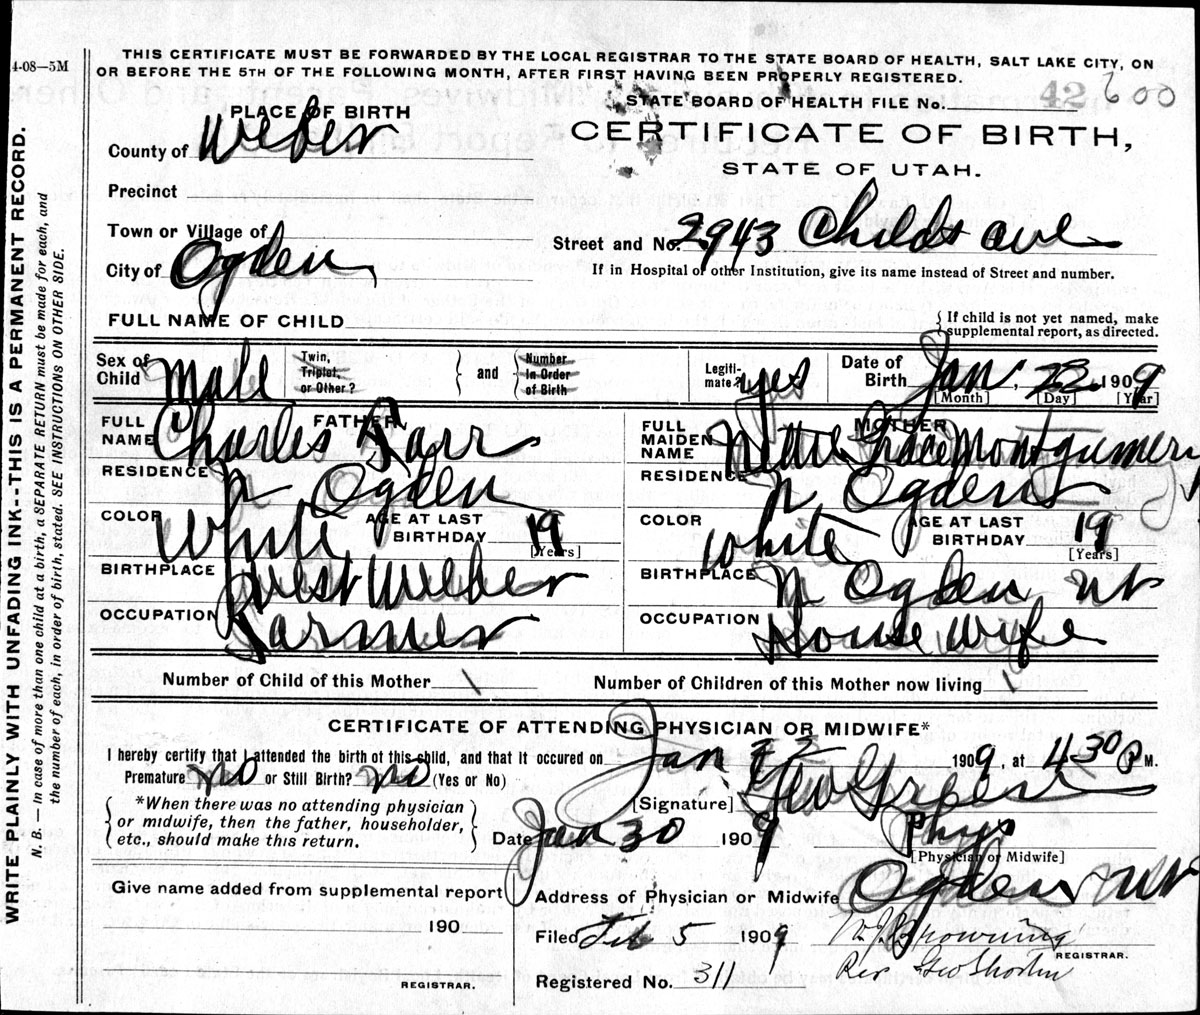 4-08—5M
THIS CERTIFICATE MUST BE FORWARDED BY THE LOCAL REGISTRAR TO THE STATE BOARD OF HEALTH, SALT LAKE CITY, ON
OR BEFORE THE 5TH OF THE FOLLOWING MONTH, AFTER FIRST HAVING BEEN PROPERLY REGISTERED.
STATE BOARD OF HEALTH FILE No. 42 600
PLACE OF BIRTH
CERTIFICATE OF BIRTH,
STATE OF UTAH.
County of Weber
Precinct
Town or Village of
Street and No. 2943 Childs ave
City of Ogden
If in Hospital or other Institution, give its name instead of Street and number.
FULL NAME OF CHILD
{ If child is not yet named, make
supplemental report, as directed.
Sex of Child Male
Twin, Triplet, or Other?
} and {
Number in Order of Birth
Legiti-mate? yes
Date of Birth Jan. 22 1909
[Month] [Day] [Year]
FATHER
FULL NAME Charles
MOTHER
FULL MAIDEN NAME Nettie Grace Montgumery
RESIDENCE N Ogden
RESIDENCE N Ogden
COLOR White AGE AT LAST BIRTHDAY 19 [Years]
COLOR White AGE AT LAST BIRTHDAY 19 [Years]
BIRTHPLACE West Weber
BIRTHPLACE N Ogden Ut
OCCUPATION Farmer
OCCUPATION House wife
Number of Child of this Mother 1
Number of Children of this Mother now living 1
CERTIFICATE OF ATTENDING PHYSICIAN OR MIDWIFE*
I hereby certify that I attended the birth of this child, and that it occured on Jan 22 1909, at 430 P M.
Premature no or Still Birth? no (Yes or No)
[Signature] Geo
*When there was no attending physician
or midwife, then the father, householder,
etc., should make this return.
Date Jan 30 1909 Phys
[Physician or Midwife]
Give name added from supplemental report
190
REGISTRAR.
Address of Physician or Midwife Ogden Ut
Filed Feb 5 1909 W. J. Browning
REGISTRAR.
Registered No. 311
Per Geo
WRITE PLAINLY WITH UNFADING INK--THIS IS A PERMANENT RECORD.
N. B. — In case of more than one child at a birth, a SEPARATE RETURN must be made for each, and
the number of each, in order of birth, stated. SEE INSTRUCTIONS ON OTHER SIDE.